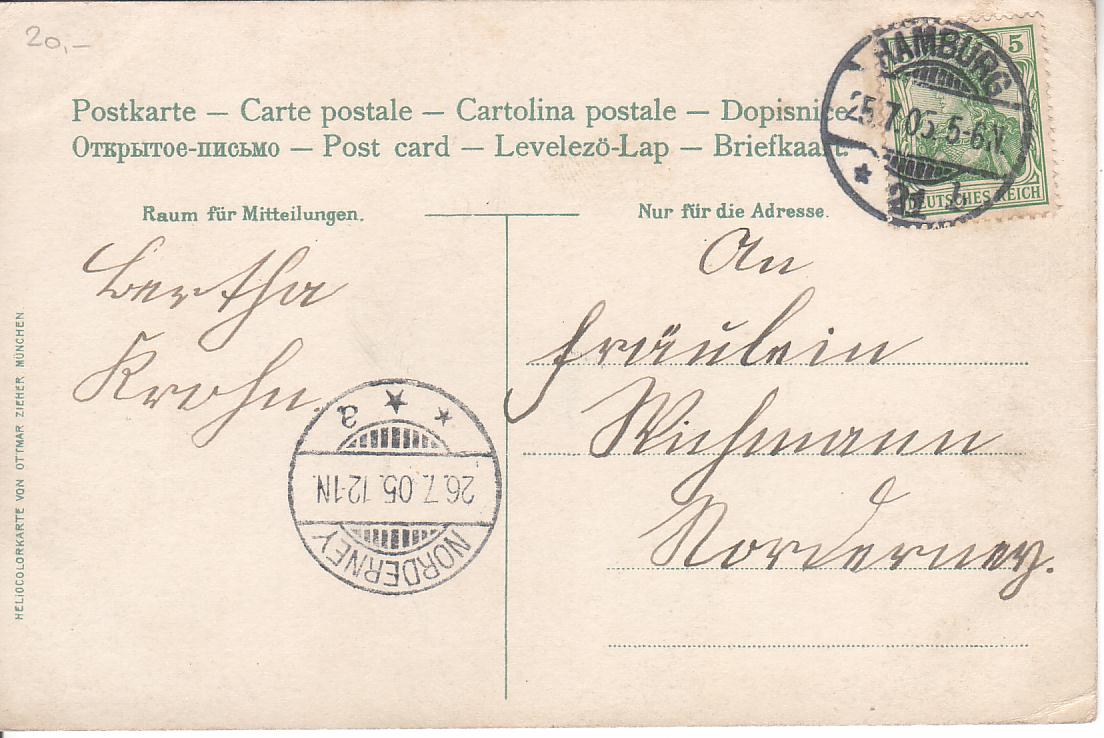 20,–
Postkarte – Carte postale – Cartolina postale – Dopisnice
Открытое-письмо – Post card – Levelezö-Lap – Briefkaart
HAMBURG
25.7.05.5-6N.
5
DEUTSCHES REICH
Raum für Mitteilungen.
Nur für die Adresse.
Bertha
Krohn.
An
Fräulein
Wichmann
Norderney.
a
26.7.05.12-1N.
NORDERNEY
HELIOCOLORKARTE VON OTTMAR ZIEHER, MÜNCHEN